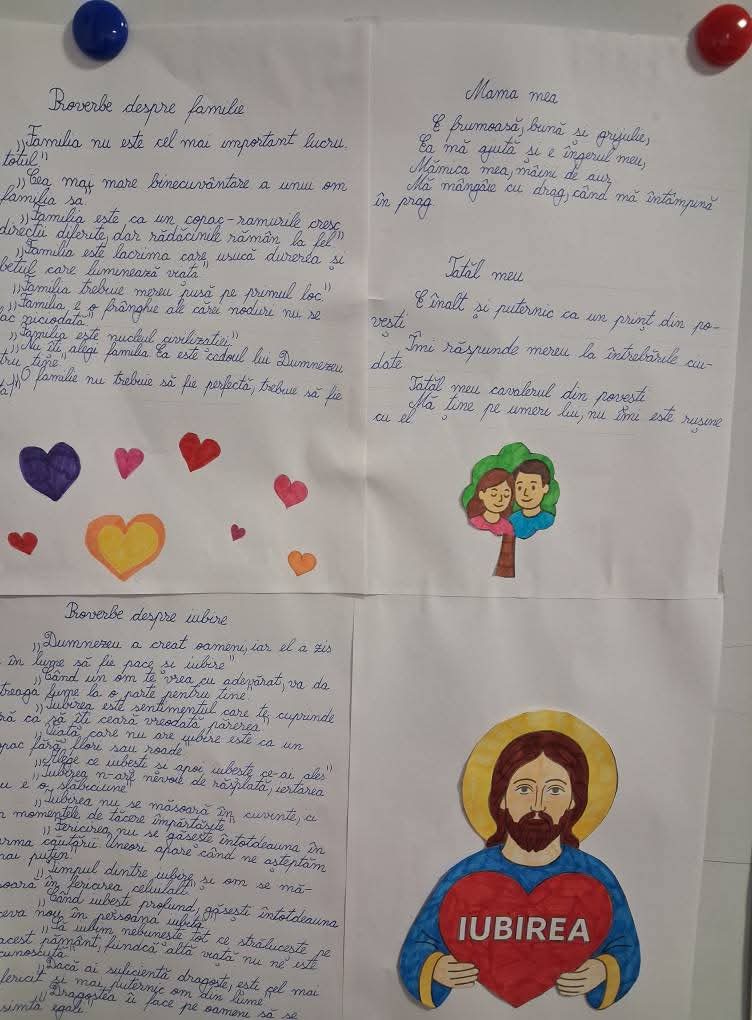 Proverbe despre familie
,,Familia nu este cel mai important lucru.
totul"
,,Cea mai mare binecuvântare a unui om
familia sa"
,,Familia este ca un copac-ramurile cresc
direcții diferite, dar rădăcinile rămân la fel"
,,Familia este lacrima care usucă durerea și
betul care luminează viața"
,,Familia trebuie mereu pusă pe primul loc."
,,Familia e o frânghie ale cărei noduri nu se
ac niciodată"
,,Familia este nucleul civilizației"
,,Nu îți alegi familia. Ea este cadoul lui Dumnezeu
tru tine"
,,O familie nu trebuie să fie perfectă, trebuie să fie
Mama mea
E frumoasă, bună si grijulie,
Ea mă ajută și e îngerul meu,
Mămica mea, mâini de aur
Mă mângâie cu drag, când mă întâmpină
în prag
Tatăl meu
E înalt și puternic ca un prinț din po-
vești
Îmi răspunde mereu la întrebările ciu-
date
Tatăl meu cavalerul din povești
Mă ține pe umerii lui, nu îmi este rușine
cu el
Proverbe despre iubire
,,Dumnezeu a creat oameni, iar el a zis
în lume să fie pace și iubire"
,,Când un om te vrea cu adevărat, va da
treaga lume la o parte pentru tine"
,,Iubirea este sentimentul care te cuprinde
ră ca să îți ceară vreodată părerea"
,,Viața care nu are iubire este ca un
opac fără flori sau roade"
,,Alege ce iubești și apoi iubește ce-ai ales"
,,Iubirea n-are nevoie de răsplată, iertarea
u e o slăbiciune"
,,Iubirea nu se măsoară în cuvinte, ci
n momentele de tăcere împărtășite"
,,Fericirea nu se găsește întotdeauna în
urma căutării uneori apare când ne așteptăm
mai puțin"
,,Timpul dintre iubire și om se mă-
soară în fericirea celuilalt"
,,Când iubești profund, găsești întotdeauna
ceva nou în persoana iubită"
,,Să iubim nebunește tot ce strălucește pe
acest pământ, fiindcă altă viață nu ne este
cunoscută"
,,Dacă ai suficientă dragoste, ești cel mai
fericit și mai puternic om din lume"
,,Dragostea îi face pe oameni să se
simtă egali"
IUBIREA